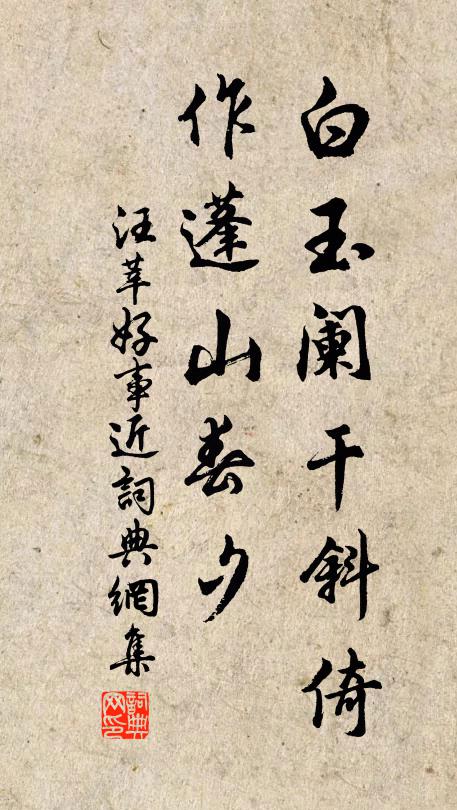 白玉阑干斜倚
作蓬山春夕
汪莘好事近詞典網集
詞典网印